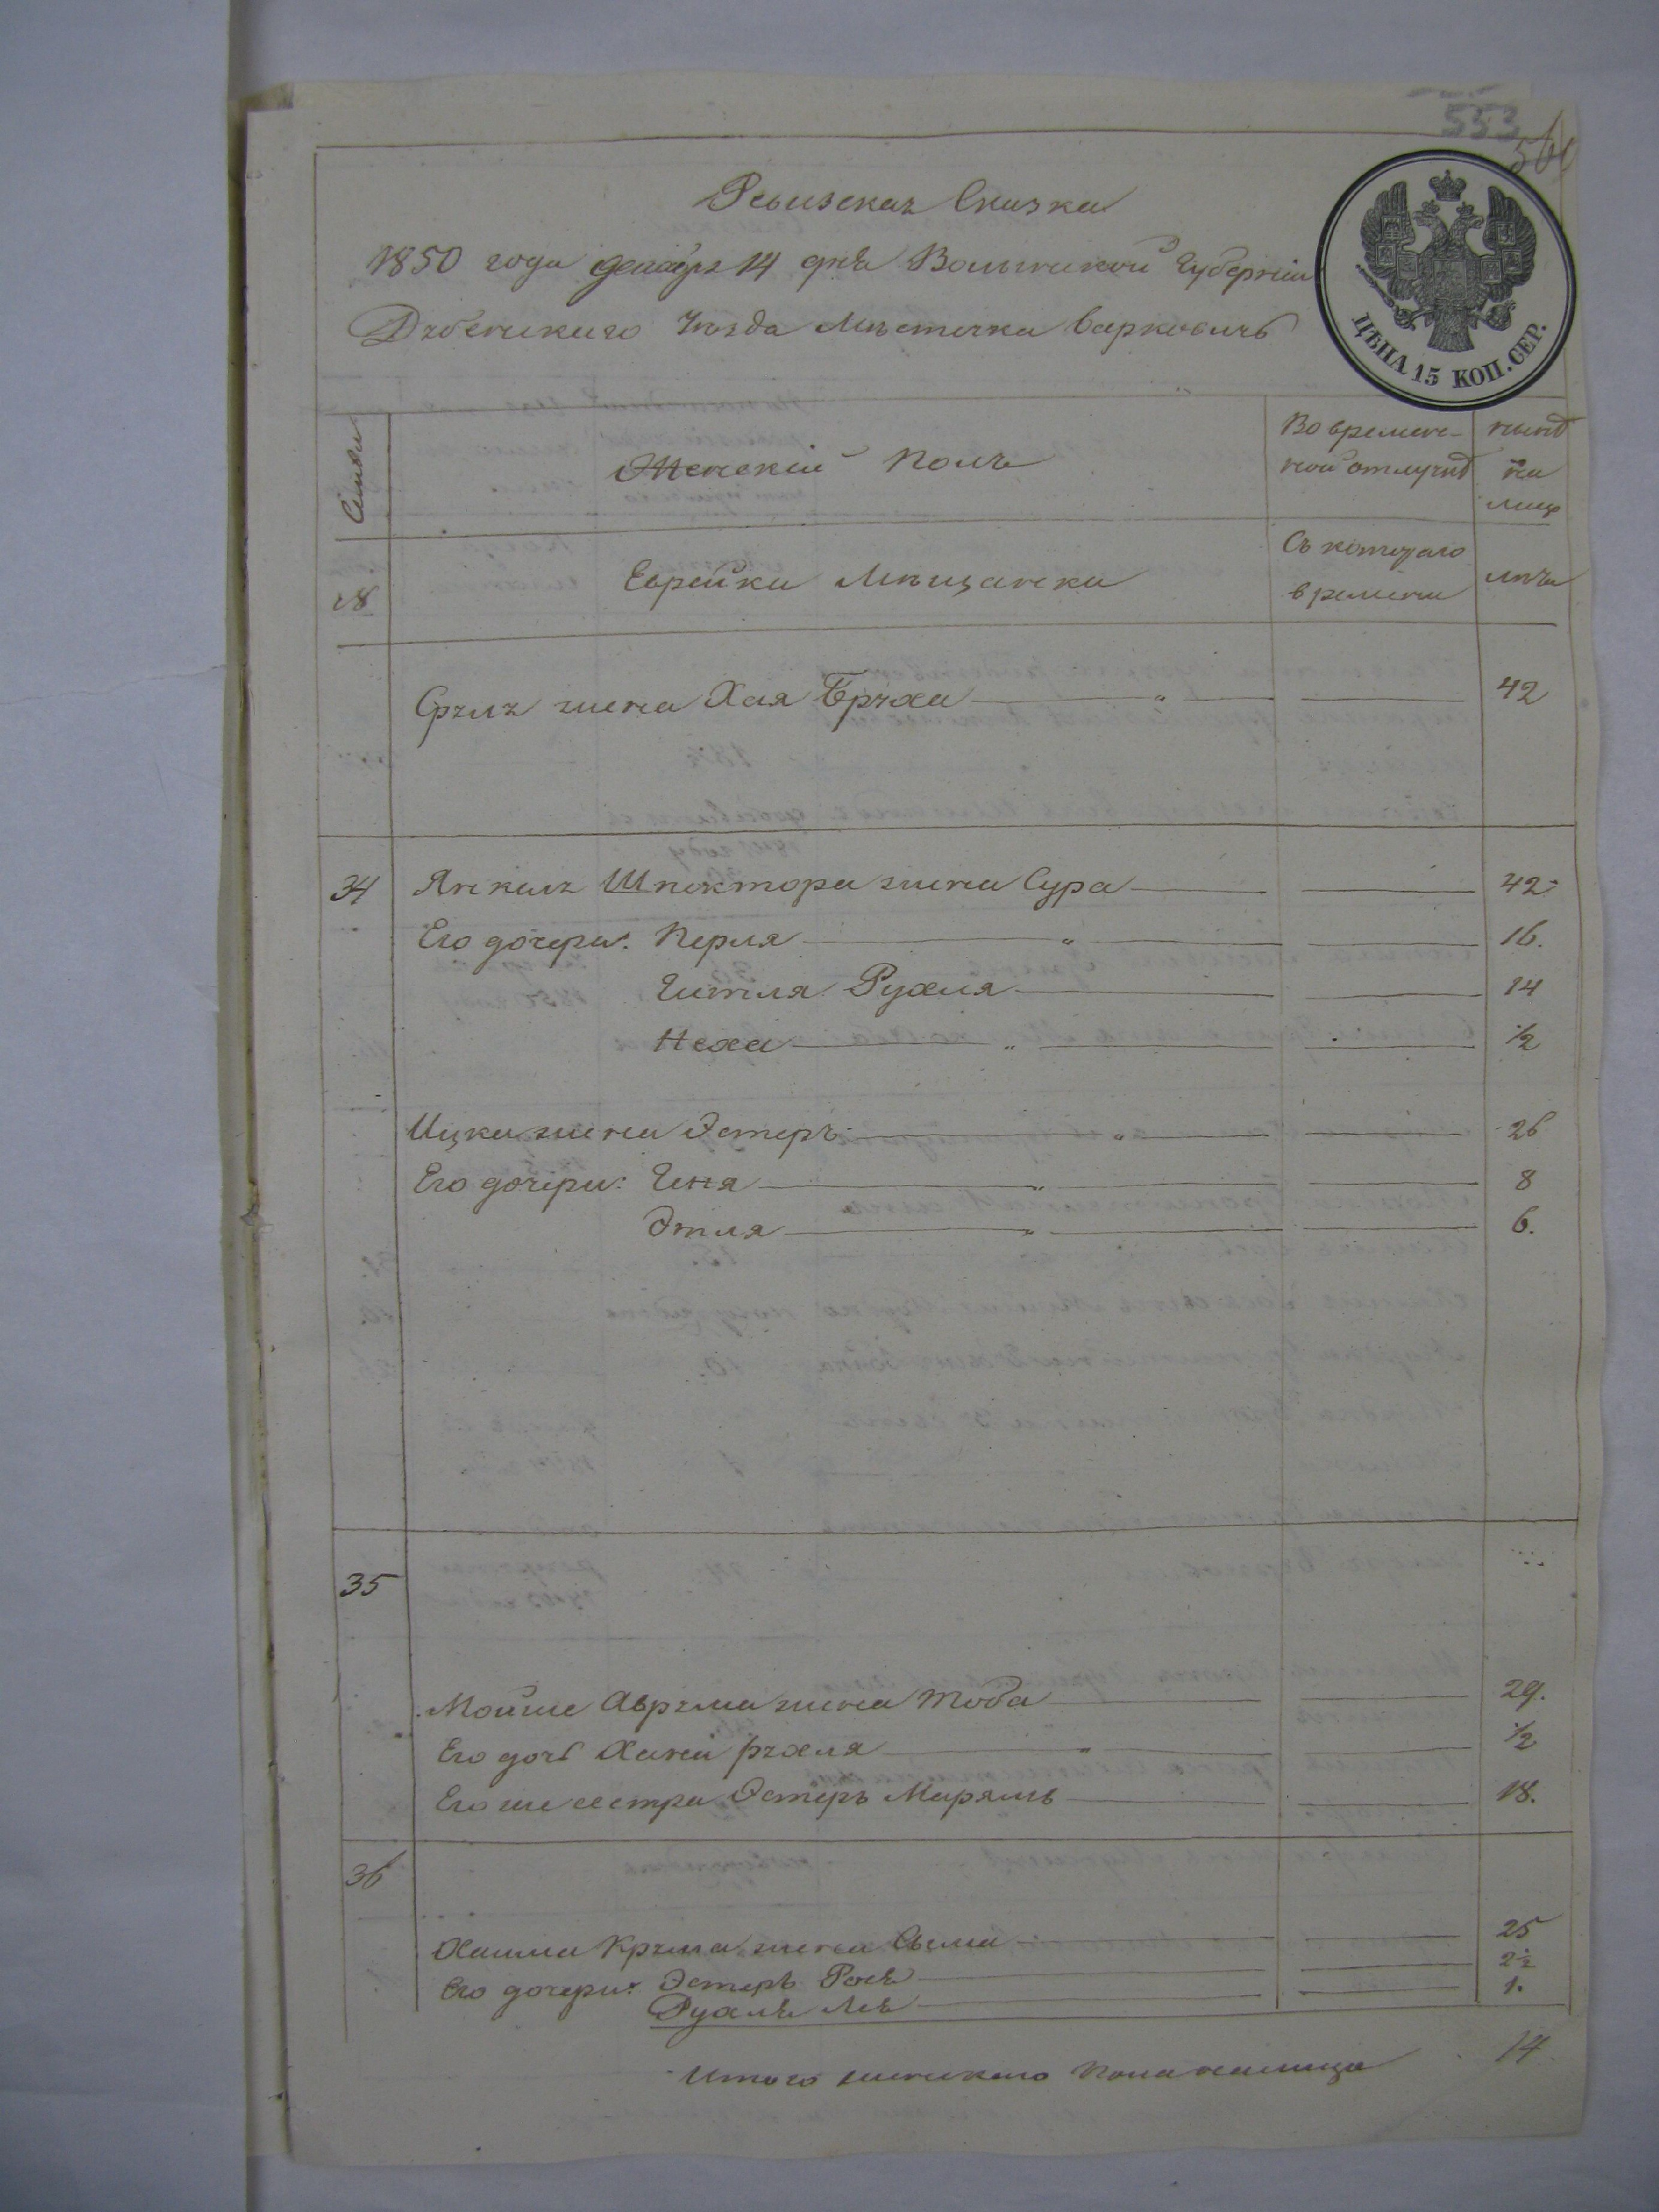 553
560
Ревизская Сказка
1850 года декабря 14 дня Волынской Губерніи
Дубенскаго Уезда Местечка Варковичъ
ЦѢНА 15 КОП. СЕР.
Семьи
Женскій Полъ
Во времен-
ной отлучкѣ
нынѣ
на
лицо
№
Еврейки Мещанки
Съ котораго
времени
лета
Сруля жена Хая Бруха 42
34 Янкиля Шпектора жена Сура 42
Его дочери: Перля 16.
Гитля Рухля 14
Неха 1/2
Ицка жена Эстеръ 26
Его дочери: Геня 8
Этля 6.
35
Мойше Аврума жена Тоба 29.
Его дочь Ханей рухля 1/2
Его же сестра Эстеръ Марямъ 18.
36
жена Сыма 25
Его дочери: Эстеръ Рося 2 1/2
Рухля Лея 1.
Итого женскаго пола налицо 14